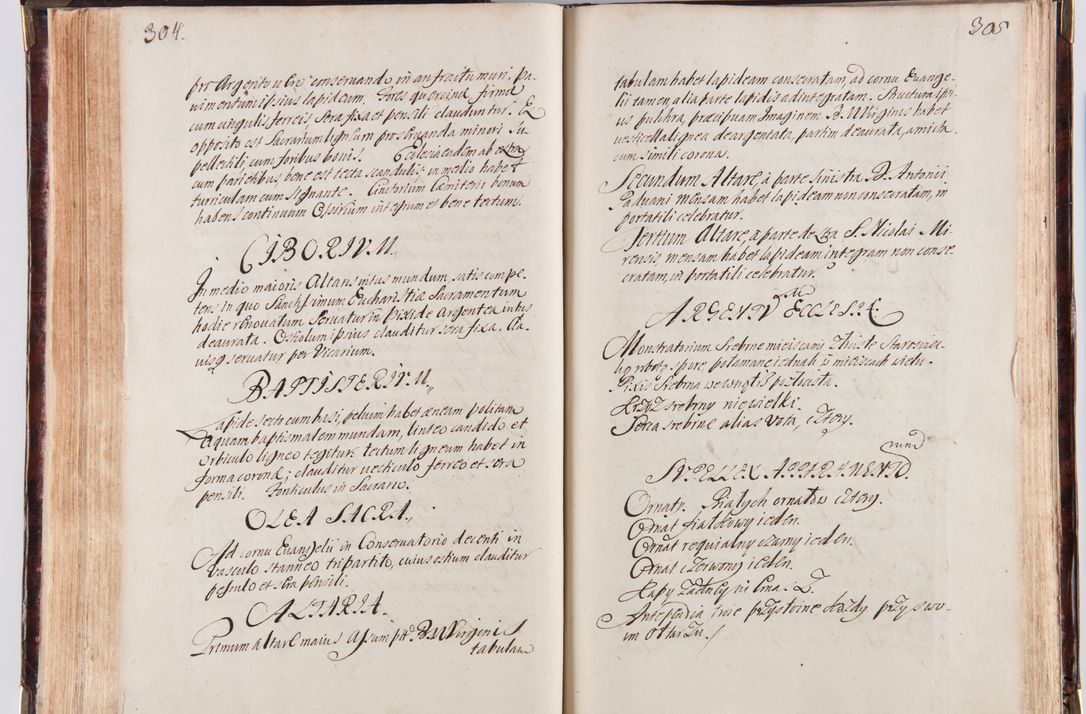 304.
pro Argento u Ere conservando in anfractu muri. Pa-
vimentum ipsius lapideum. Fores quercinæ firmæ
cum cingulis ferreis sera fixa et pensili clauduntur. E
opposito est Sacrarium ligneum pro servanda minori Su-
pellectili cum foribus bonis. Ecclesia eadem ab extra
cum parietibus, bene est tecta scandulis, in medio habet
turriculam cum signante. Cinctorium Cemiterii bonum
habens continuum Ossirium integrum et bene tectum.
CIBORIVM.
In medio maioris Altaris intus mundum, satis compe-
tens in quo Sanctissimum Eucharistiæ Sacramentum
hodie renovatum servatur in Pixide Argentea intus
deaurata. Ostiolum ipsius clauditur sera fixa. Cla-
visq servatur per Vicarium.
BAPTISTERIVM.
Lapide secto cum basi, pelvim habet æneam politam
aquam baptismalem mundam, linteo candido et
orbiculo ligneo tegitur, tectum ligneum habet in
forma coronæ; clauditur vecticulo ferreo et sera
pensili. Fonticulus in Sacrario.
OLEA SACRA.
Ad cornu Evangelii in Conservatorio decenti in
vasculo stanneo tripartito, cuius ostium clauditur
pessulo et sera pensili.
ALTARIA.
Primum altare maius Assumptae B.M Virginis
tabulam
305
tabulam habet lapideam consecratam, ad cornu Evange-
lii tamen, alia parte lapidis adintegratam. Structura ipsi-
us pulchra, præcipuam Imaginem B. M Virginis habet
vesticella lignea deargentata, partim deaurata, amicta
cum simili corona.
Secundum Altare, a parte sinistra D. Antonii
Paduani mensam habet lapideam non consecratam, in
portatili celebratur.
Tertium Altare, a parte dextra S. Nicolai Mi-
rensis mensam habet lapideam integram non conse-
cratam, in portatili celebratur.
ARGENTVM ECCLESIÆ
Monstratorium srebrne mieiscami złociste Staroswiec-
kiey roboty spore połamane iednak w mieiscach wielu.
Pixis srebrna wewnątrz pozłocista.
Krzyż srebrny niewielki.
Serca srebrne alias Vota, cztery.
SVPELLEX APPARAMENTORVM
Ornaty. Białych ornatów cztery.
Ornat fiałkowy ieden.
Ornat requialny czarny ieden.
Ornat czerwony ieden.
Kapy żadney in Cma. Z.
Antepedia troie przystoine każdy przy swo-
im Ołtarzu.